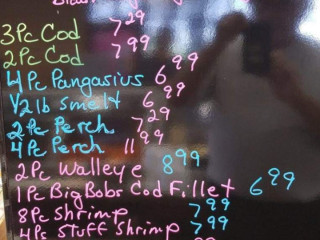 3Pc Cod 7 29
2Pc Cod 7 99
4 Pc Pangasius 6 99
1/2 lb Smelt 6 99
2 Pc Perch 7 29
4 Pc Perch 11 99
2 Pc Walleye 8 99
1 Pc Big Bobs Cod Fillet 6 99
8Pc Shrimp 7 99
4Pc Stuff Shrimp 7 99